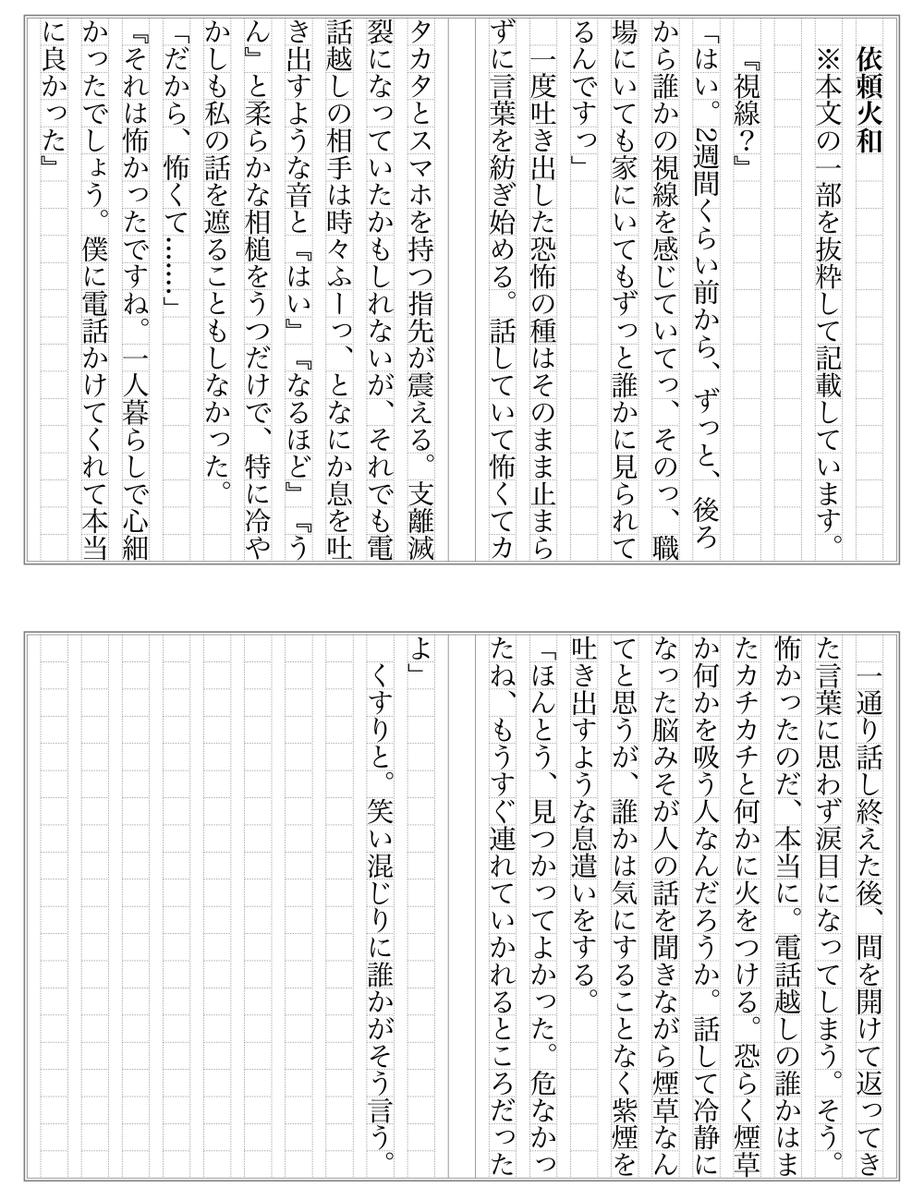 依頼火和
※本文の一部を抜粋して記載しています。
『視線？』
「はい。2週間くらい前から、ずっと、後ろ
から誰かの視線を感じていてっ、そのっ、職
場にいても家にいてもずっと誰かに見られて
るんですっ」
一度吐き出した恐怖の種はそのまま止まら
ずに言葉を紡ぎ始める。話していて怖くてカ
タカタとスマホを持つ指先が震える。支離滅
裂になっていたかもしれないが、それでも電
話越しの相手は時々ふーっ、となにか息を吐
き出すような音と『はい』『なるほど』『う
ん』と柔らかな相槌をうつだけで、特に冷や
かしも私の話を遮ることもしなかった。
「だから、怖くて……」
『それは怖かったですね。一人暮らしで心細
かったでしょう。僕に電話かけてくれて本当
に良かった』
一通り話し終えた後、間を開けて返ってき
た言葉に思わず涙目になってしまう。そう。
怖かったのだ、本当に。電話越しの誰かはま
たカチカチと何かに火をつける。恐らく煙草
か何かを吸う人なんだろうか。話して冷静に
なった脳みそが人の話を聞きながら煙草なん
てと思うが、誰かは気にすることなく紫煙を
吐き出すような息遣いをする。
「ほんとう、見つかってよかった。危なかっ
たね、もうすぐ連れていかれるところだった
よ」
くすりと。笑い混じりに誰かがそう言う。